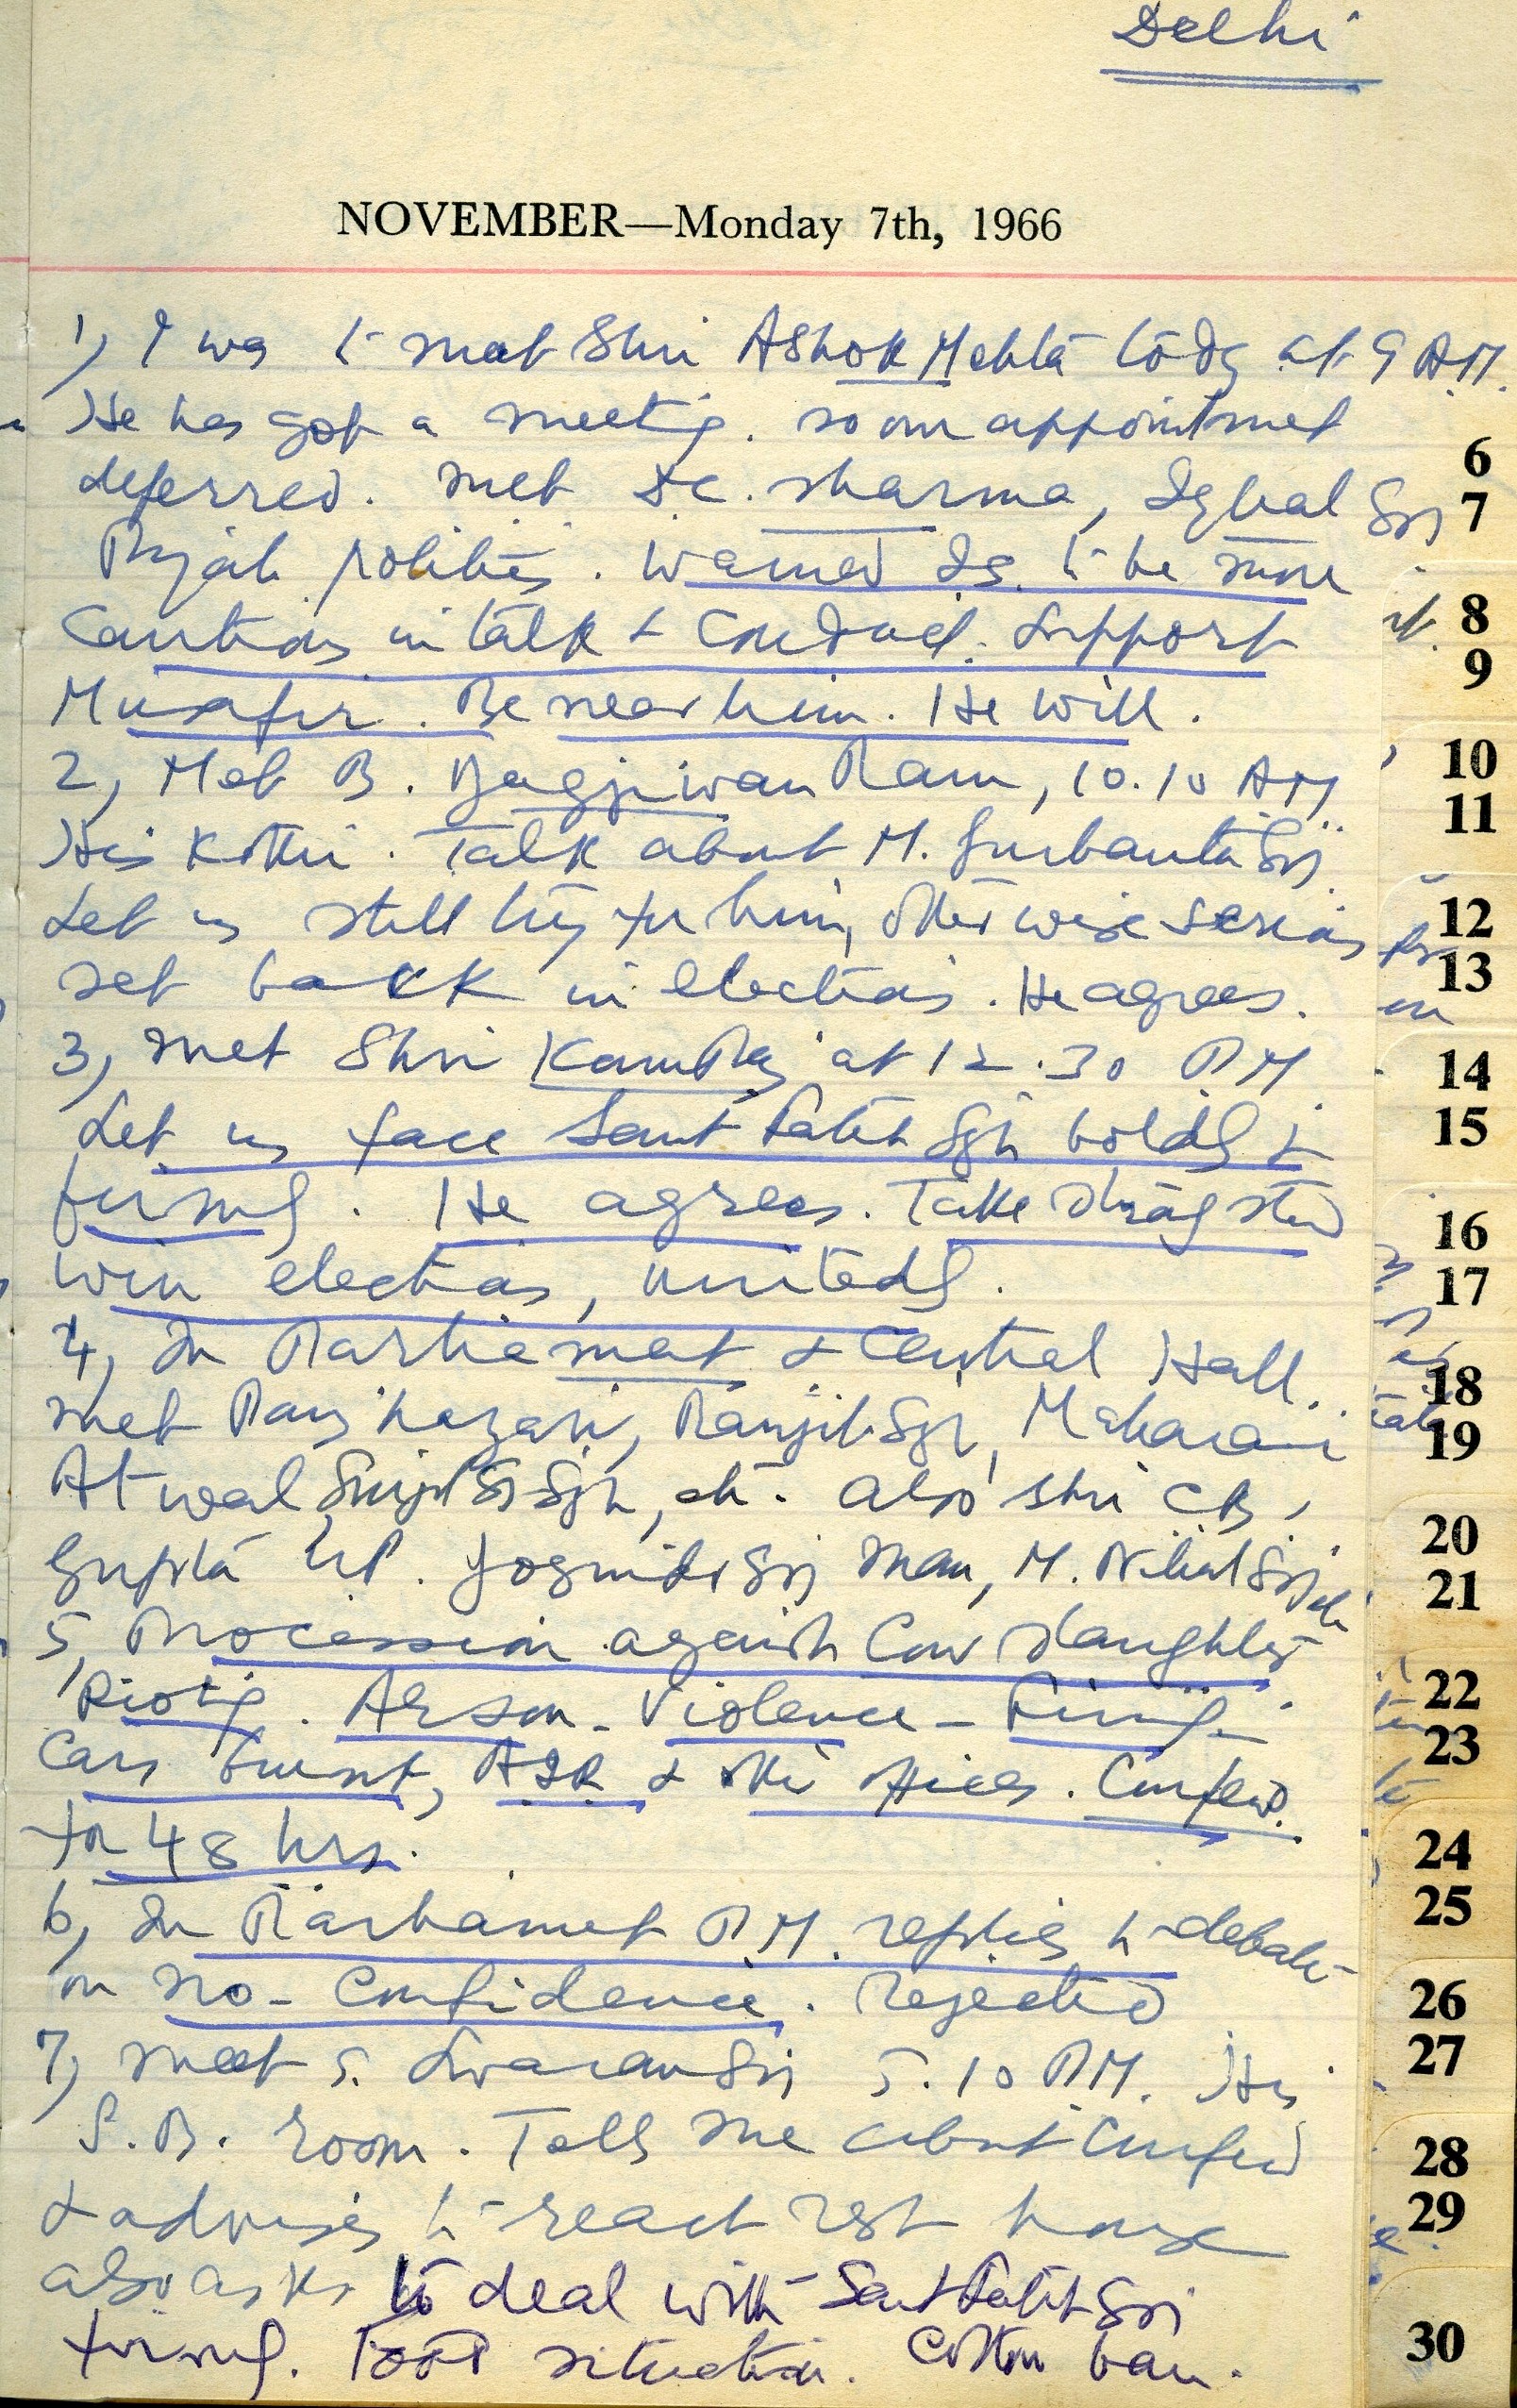 Delhi
NOVEMBER—Monday 7th, 1966
1) I was to meet Shri Ashok Mehta today at 9 A.M.
He has got a meeting. so our appointment
deferred. Met D.C. Sharma, Iqbal Sgj
Punjab politics. Warned Iq. to be more
Cautious in talk & Conduct. Support
Musafir. Be near him. He will.
2) Met B. Jagjiwan Ram, 10.10 AM
His Kothi. Talk about M. Gurbanta Sgj.
Let us still try for him, otherwise serious
set back in elections. He agrees.
3) Met Shri Kamraj at 12.30 PM
Let us face Sant Fateh Sgh boldly &
firmly. He agrees. Take strong stand
win elections, unitedly.
4) In Parliament & Central Hall.
met Ranjit Sgh, Maharani
Atwal, Surjit Sgh, etc. also Shri C.B.
Gupta UP. Joginder Sgj Man, M. Nihal Sgj etc
5) Procession against Cow Slaughter
Rioting. Arson - Violence - Firing.
Cars burnt, AIR & other offices. Curfew.
for 48 hrs.
6) In Parliament P.M. replies to debate
on no-Confidence. rejected
7) meet S. Swaran Sgj 5.10 P.M. His
room. Tells me about Curfew
& advises to reach rest house
also asks to deal with Sant Fateh Sgj
firmly. Food situation. Cotton ban.
6
7
8
9
10
11
12
13
14
15
16
17
18
19
20
21
22
23
24
25
26
27
28
29
30